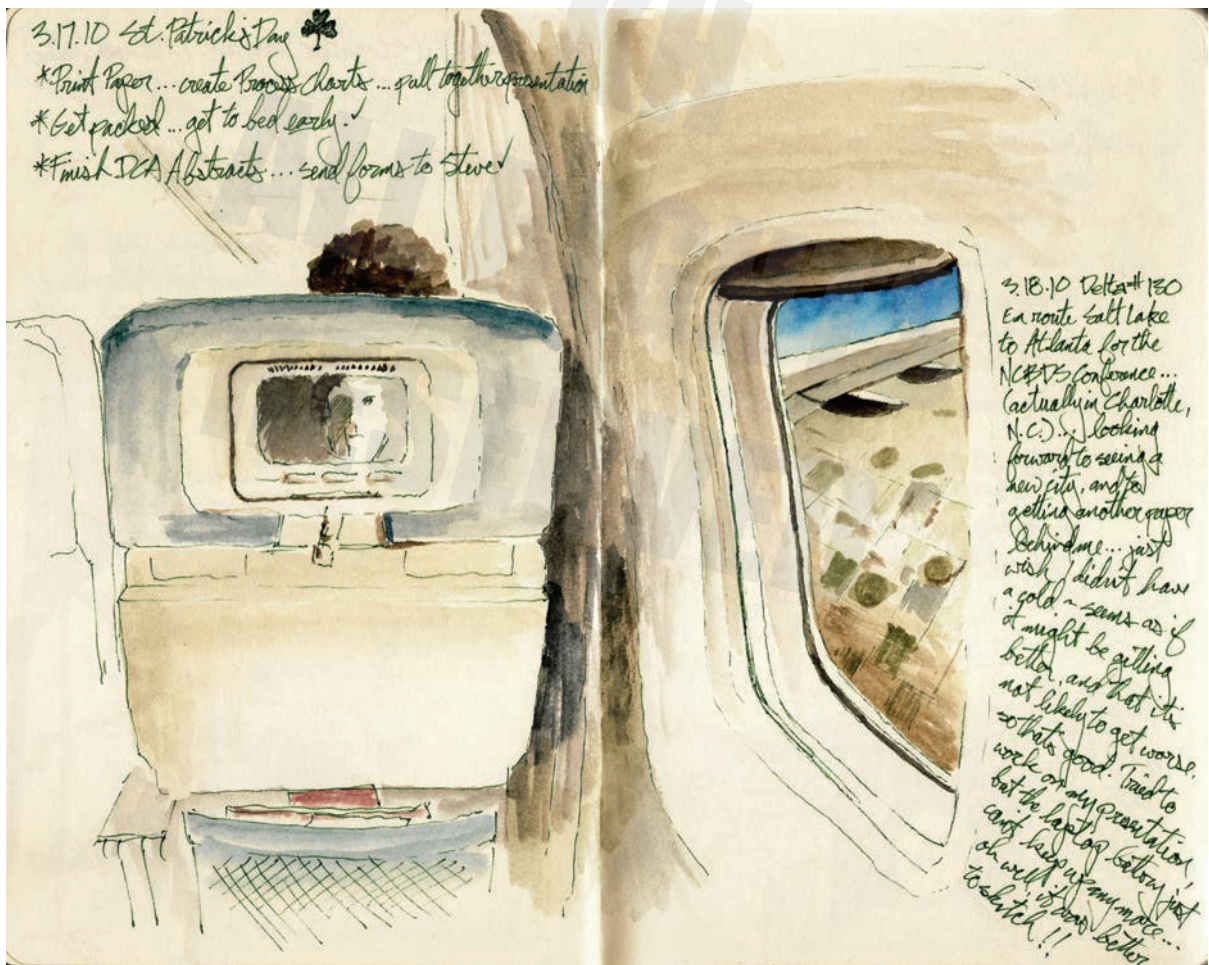 3.17.10 St. Patrick's Day
*Print Paper... create Process Charts... pull together presentation
*Get packed... get to bed early. ✓
*Finish DCA Abstracts... send forms to Steve ✓
3.18.10 Delta # 130
En route Salt Lake
to Atlanta for the
NCBDS Conference...
(actually in Charlotte,
N.C.)... looking
forward to seeing a
new city, and to
getting another paper
behind me... just
wish I didn't have
a cold ~ seems as if
it might be getting
better, and that it's
not likely to get worse.
so that's good. Tried to
work on my presentation,
but the laptop battery just
can't keep up anymore...
oh well, it was better
to sketch!!
ALL RIGHTS
RESERVED